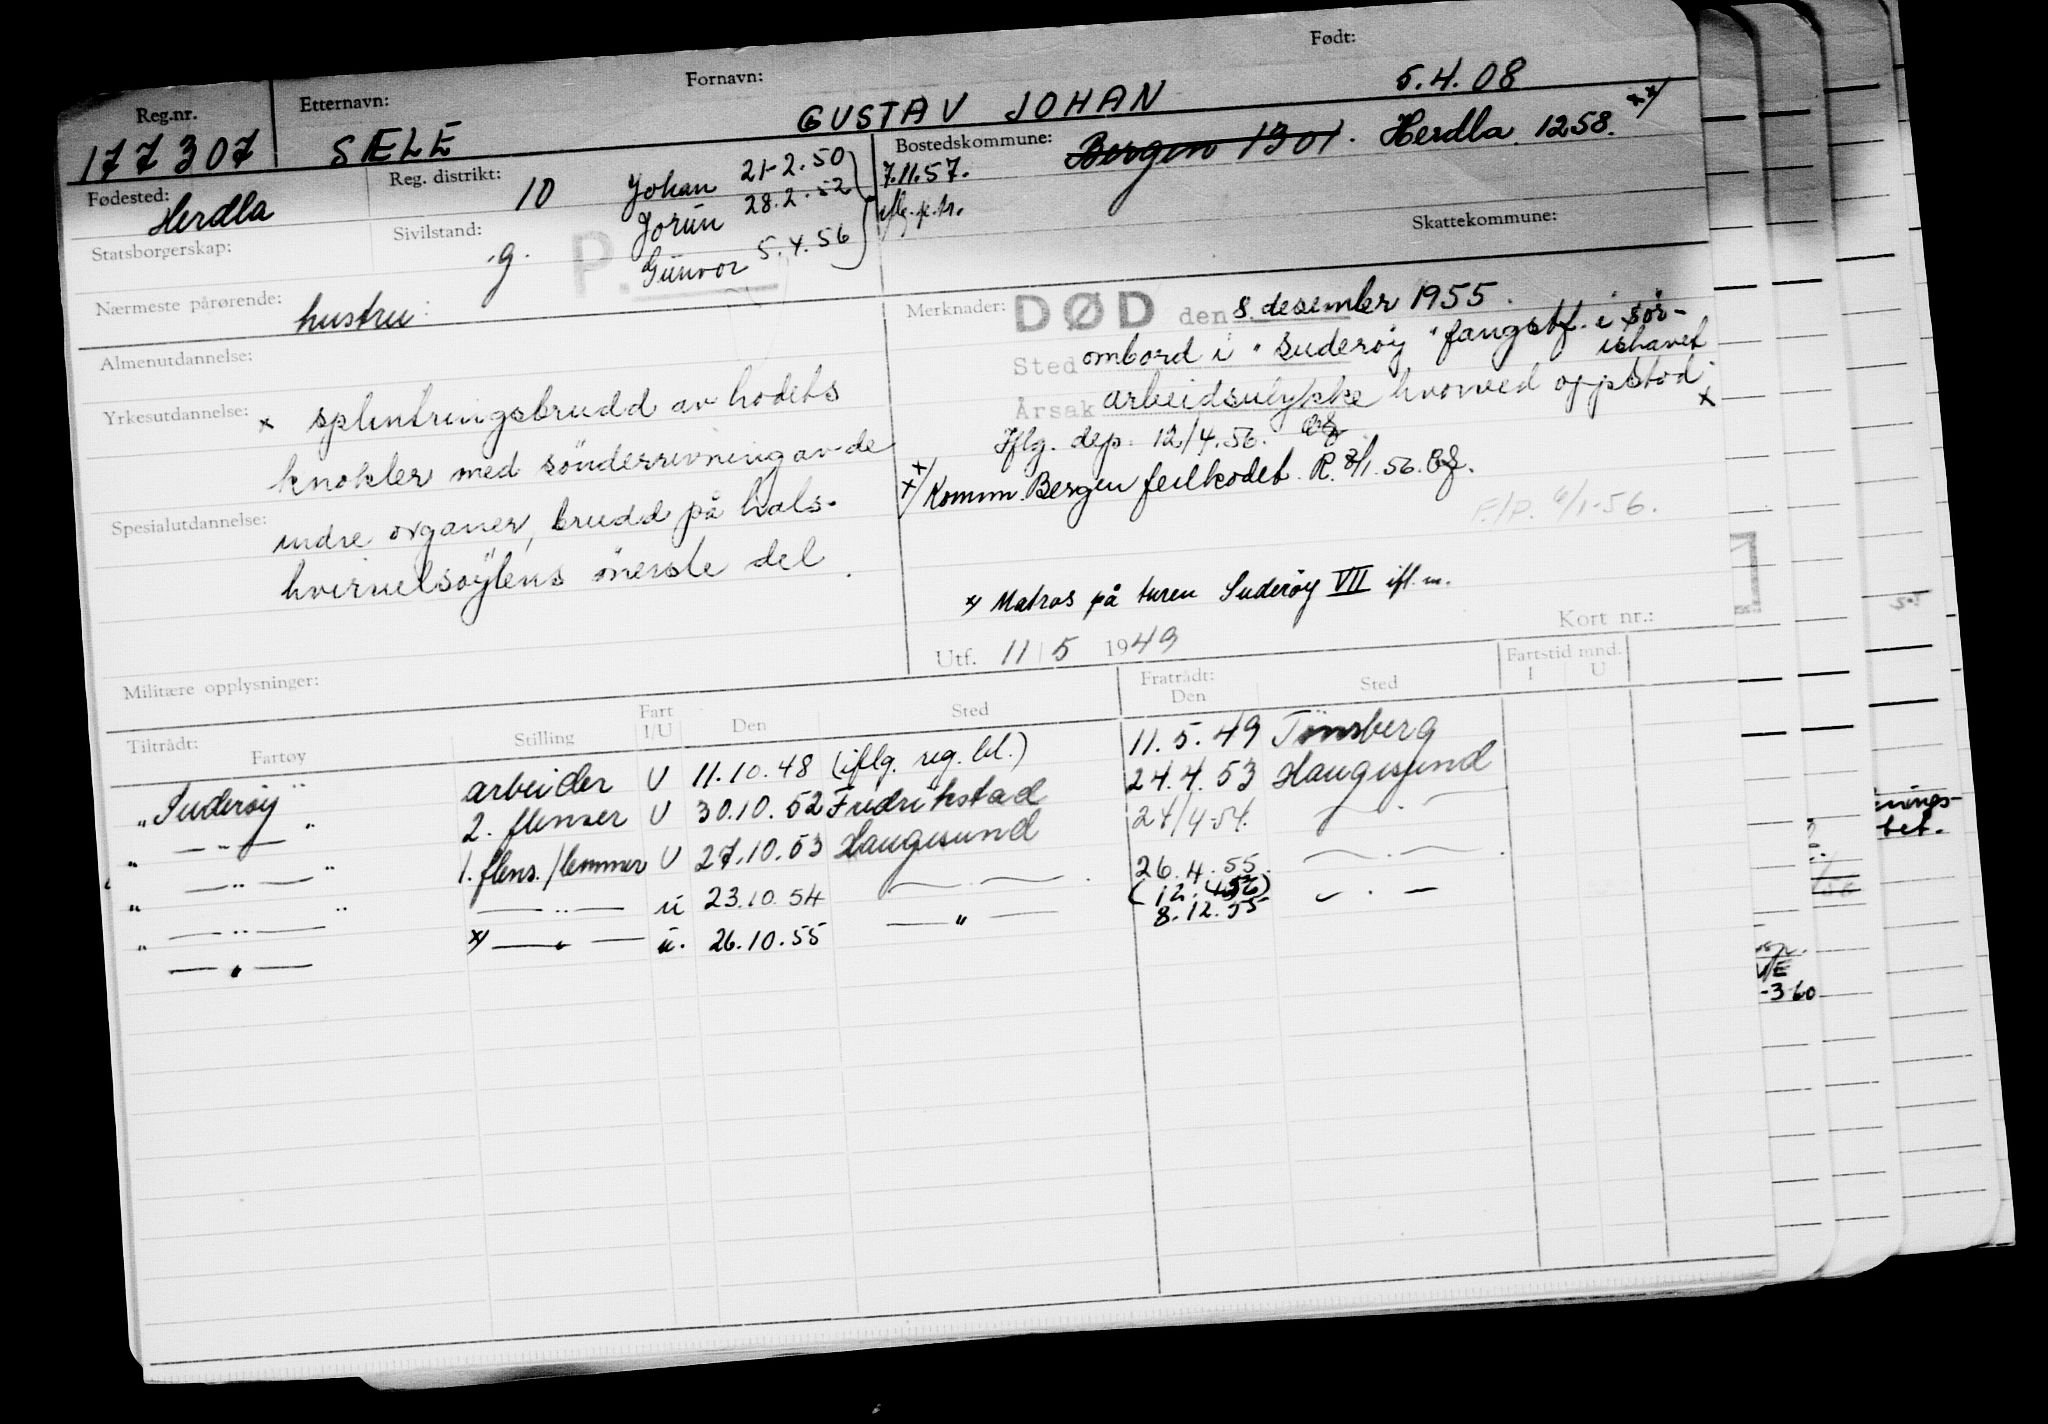 Reg.nr. Etternavn: Fornavn: Født:
177307 SÆLE GUSTAV JOHAN 5.4.08
Fødested: Herdla Reg. distrikt: 10 Johan 21-2.50 Bostedskommune: Bergen 1301. Herdla 1258. xx/
Jorun 28.2.52 7.11.57.
Statsborgerskap: Sivilstand: g. P. Gunvor 5.4.56 iflg. p.tr. Skattekommune:
Nærmeste pårørende: hustru:
Almenutdannelse:
Yrkesutdannelse: x splintringsbrudd av hodets
knokler med sönderrivning av de
Spesialutdannelse: indre organer, brudd på hals-
hvirvelsøylens överste del.
Merknader: DØD den 8. desember 1955.
Sted ombord i "Suderøy" fangstf. i sør-
ishavet
Årsak arbeidsulykke hvorved oppstod x
Iflg. dep. 12/4.56.
xx/ Komm. Bergen feilkodet. R. 3/1.56.
F./P. 6/1-56.
x/ Matros på turen Suderøy VII ifl. m.
Utf. 11/5 1949 Kort nr.:
Militære opplysninger:
Tiltrådt: Fratrådt: Fartstid mnd.
Fartøy Stilling Fart I/U Den Sted Den Sted I U
"Suderøy" arbeider U 11.10.48 (iflg. reg. bl.) 11.5.49 Tønsberg
" — " — " 2. flenser U 30.10.52 Fredrikstad 24.4.53 Haugesund
" — " — " 1. flens./lemmer U 27.10.53 Haugesund 24/4-54. — " —
" — " — " — " — u 23.10.54 — " — 26.4.55. — " —
(12.4.56)
— " — x/ — " — u. 26.10.55 — " — 8.12.55 — " —
nings-
bet.
-3 60